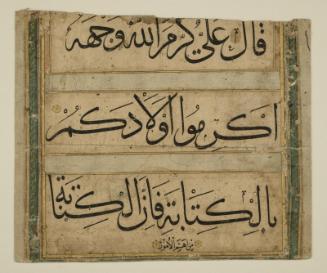 قال علي كرم الله وجهه
اكرموا اولادكم
بالكتابة فان الكتابة
من اهم الامور